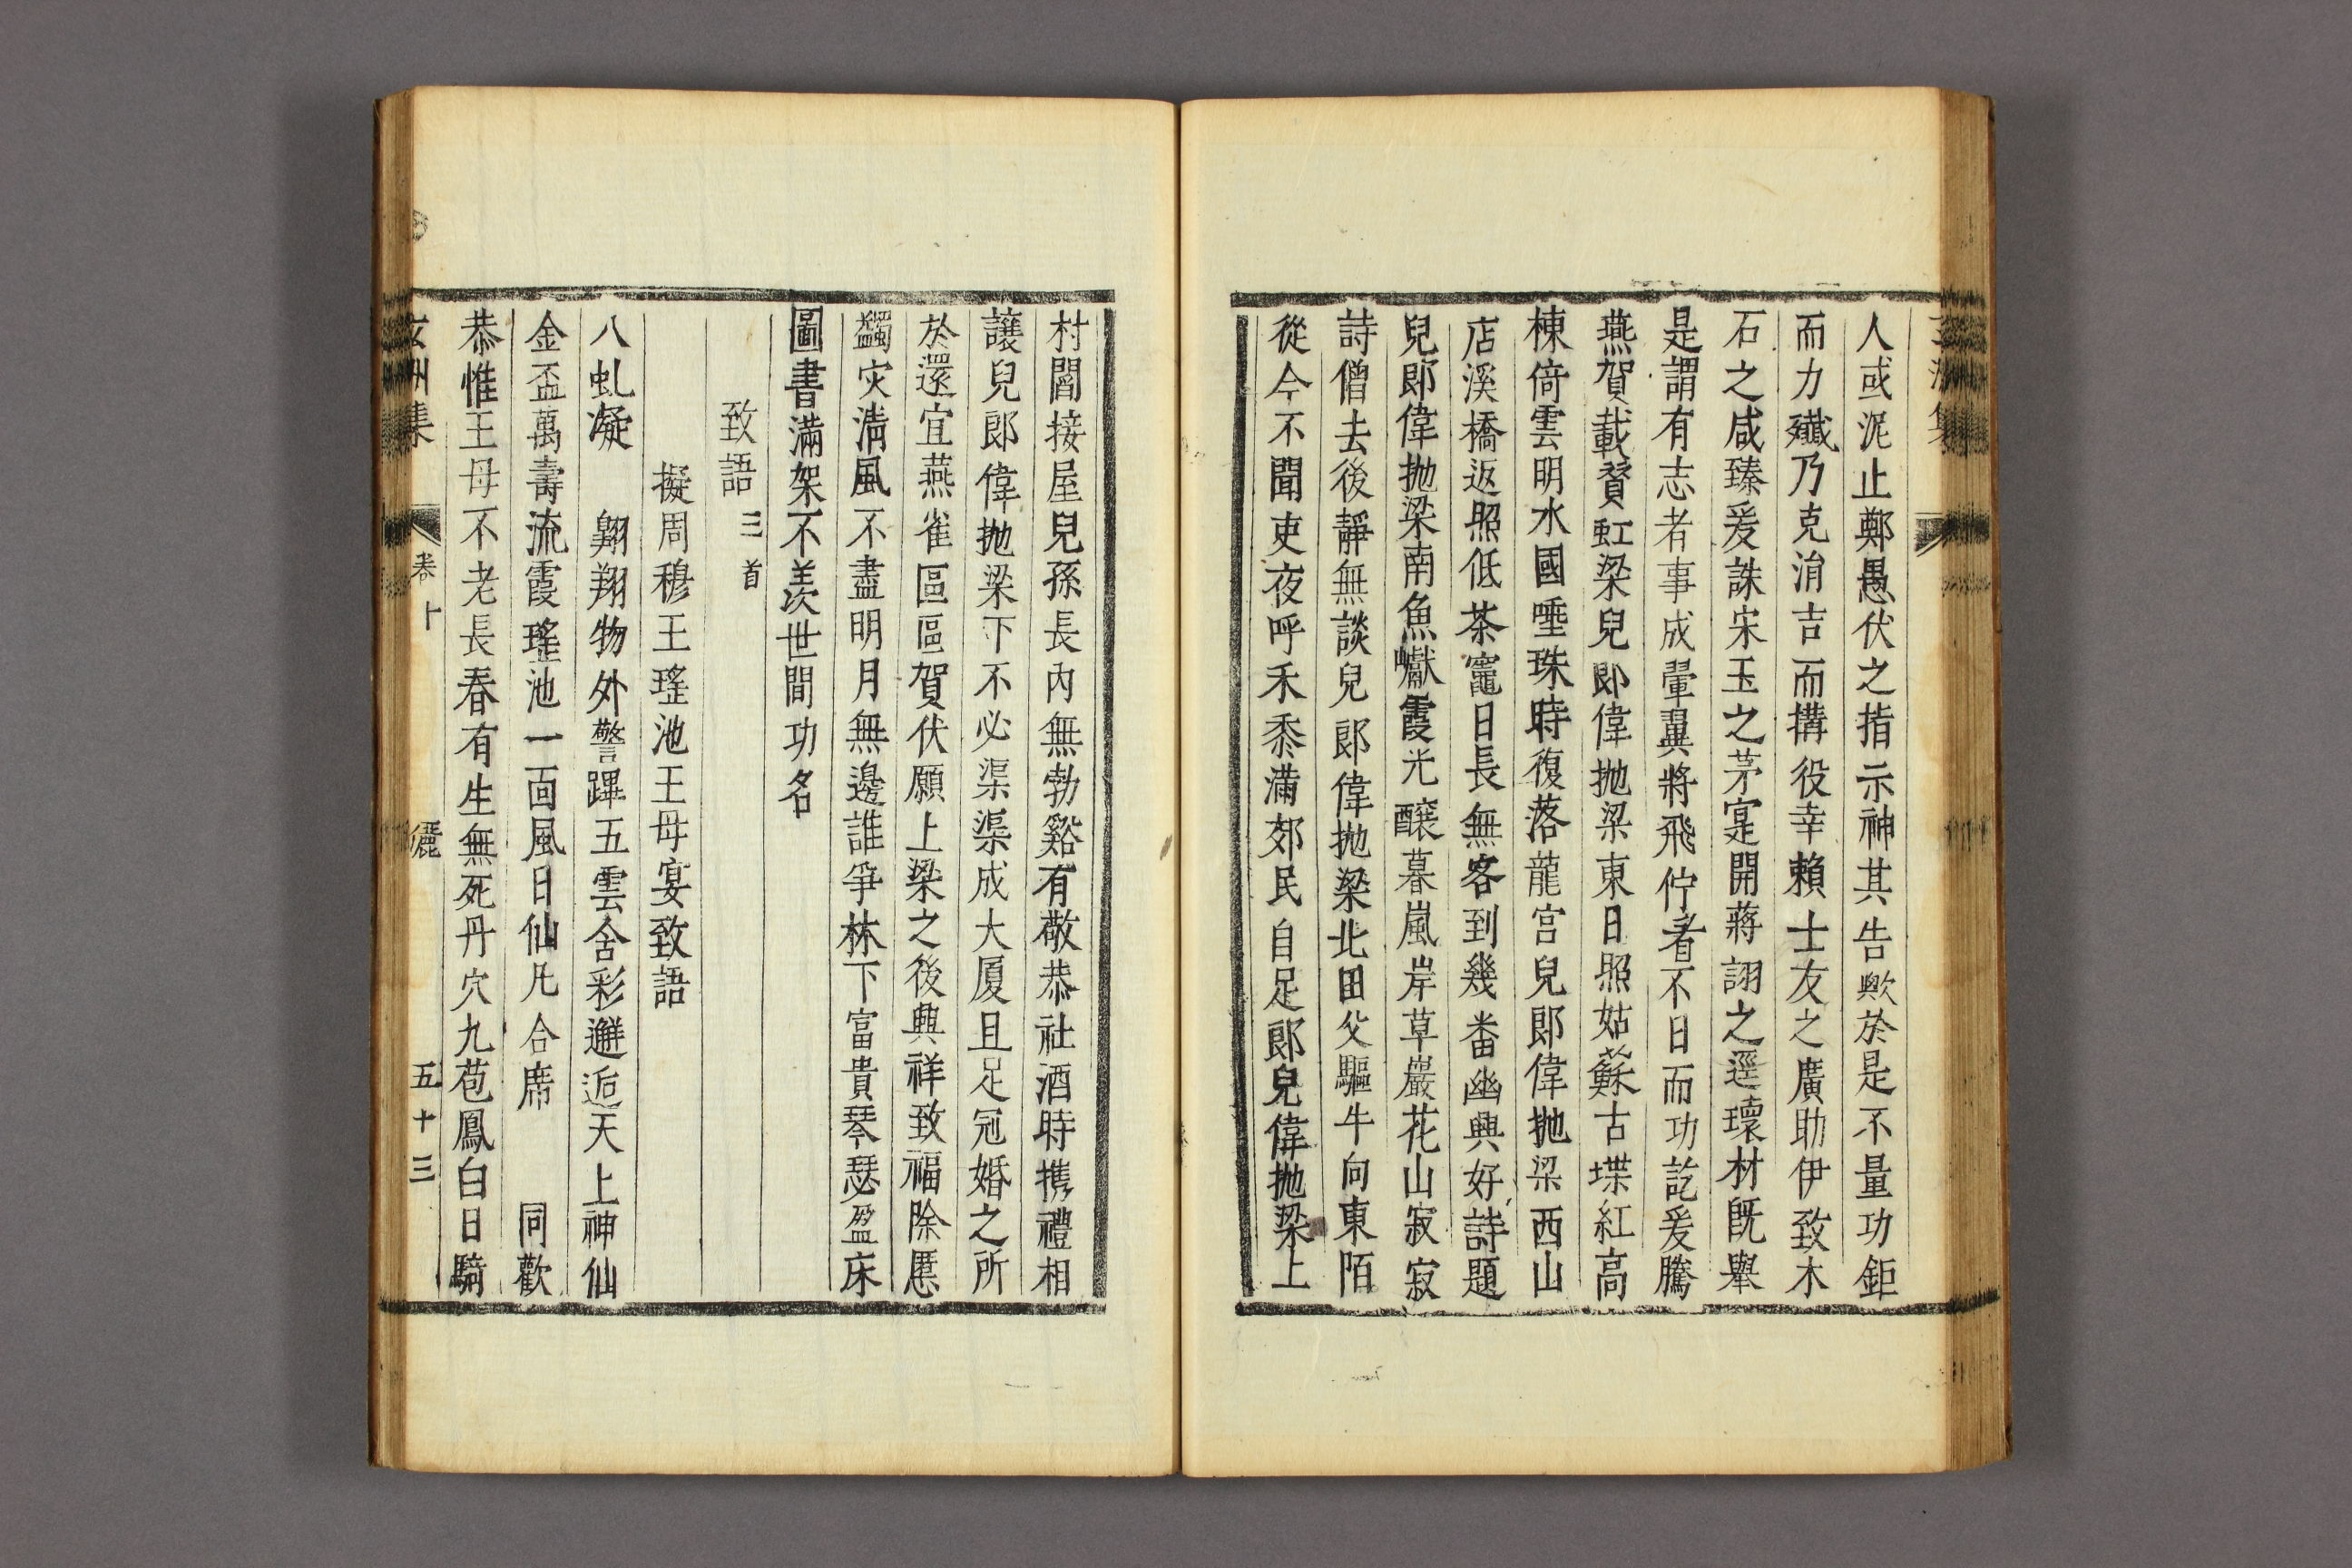 人或泥止鄭愚伏之指示神其告歟於是不量功鉅
而力殲乃克涓吉而搆役幸賴士友之廣助伊致木
石之咸臻爰誅宋玉之茅寔開蔣詡之逕瓌材旣舉
是謂有志者事成翬翼將飛佇看不日而功訖爰騰
燕賀載賛虹梁兒郞偉抛梁東日照姑蘇古堞紅高
棟倚雲明水國唾珠時復落龍宮兒郞偉抛梁西山
店溪橋返照低茶竈日長無客到幾畨幽興好詩題
兒郞偉抛梁南魚巘霞光釀暮嵐岸草巖花山寂寂
詩僧去後靜無談兒郞偉抛梁北田父驅牛向東陌
從今不聞吏夜呼禾黍滿郊民自足郞兒偉抛梁上
村閭接屋兒孫長內無勃谿有敬恭社酒時携禮相
讓兒郞偉抛梁下不必渠渠成大厦且足冠婚之所
於還宜燕雀區區賀伏願上梁之後興祥致福除慝
蠲灾淸風不盡明月無邊誰爭林下富貴琴瑟盈床
圖書滿架不羡世間功名
致語三首
擬周穆王瑤池王母宴致語
八虬凝 翺翔物外警蹕五雲含彩邂逅天上神仙
金盃萬壽流霞瑤池一面風日仙凡合席 同歡
恭惟王母不老長春有生無死丹穴九苞鳳白日騎
玄洲集 卷十 儷 五十三